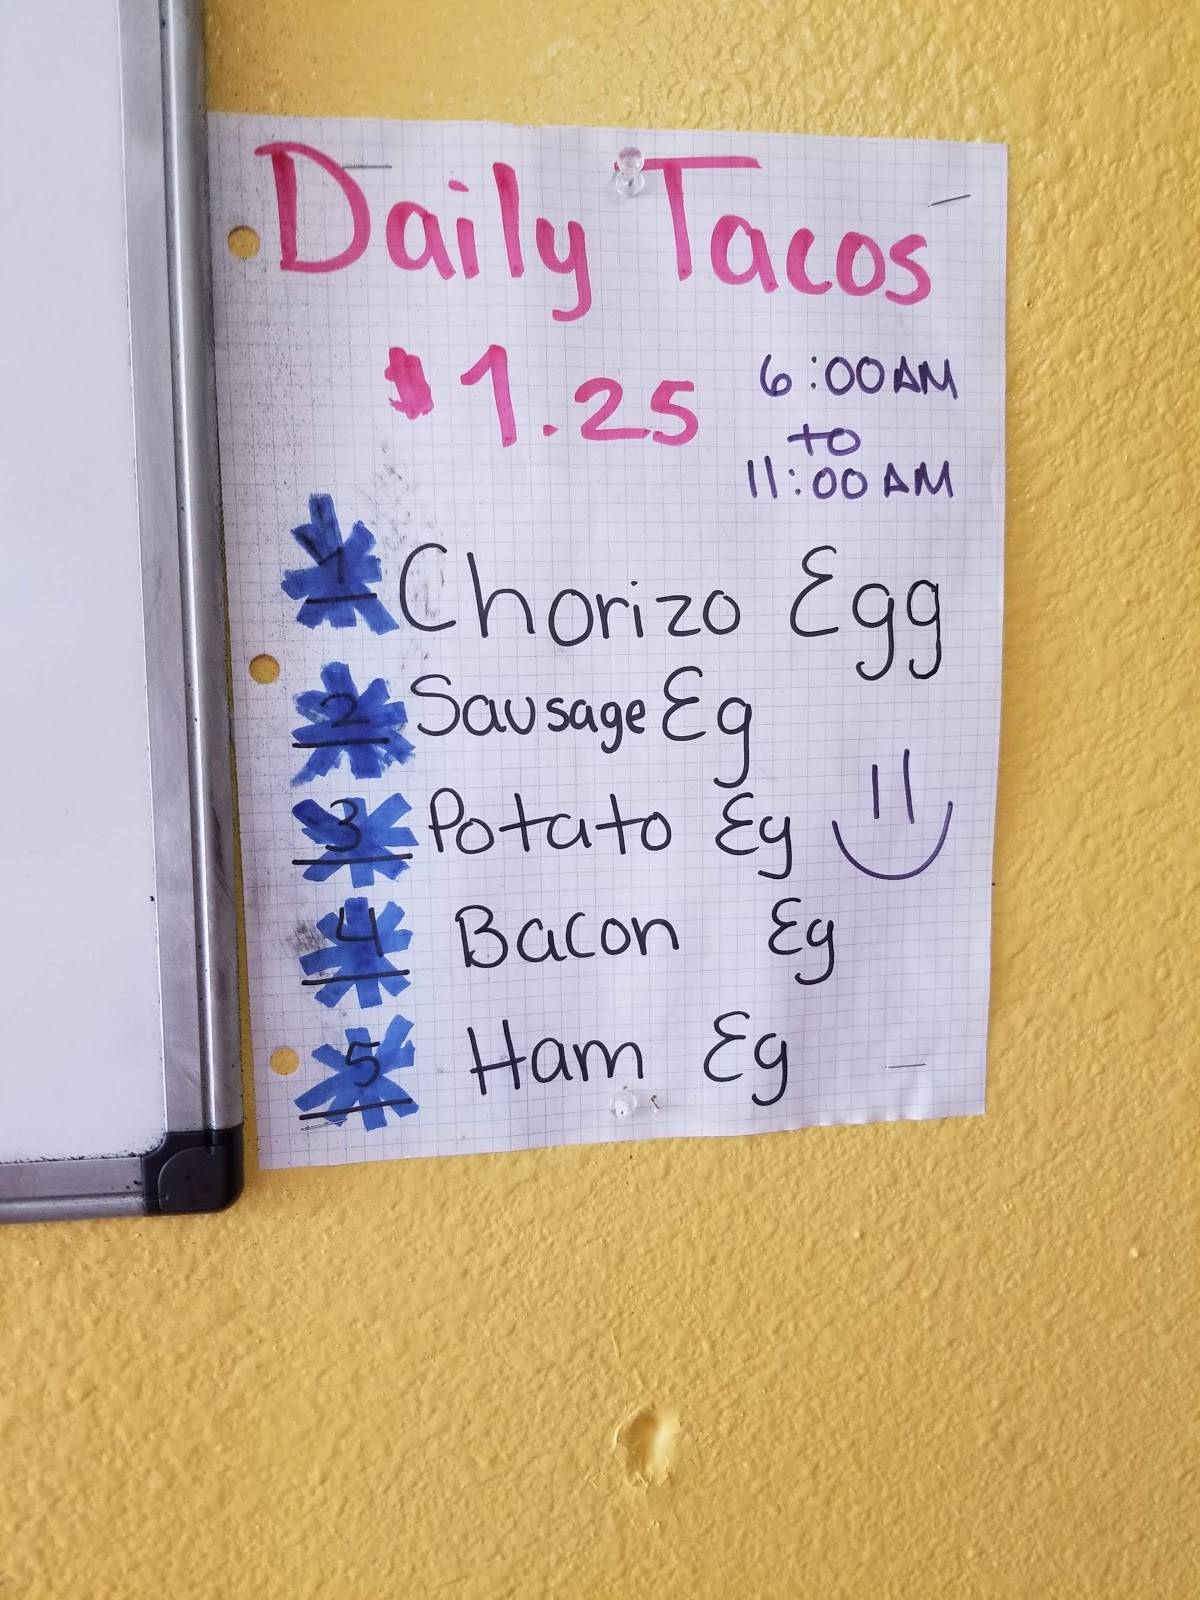 Daily Tacos
$1.25
6:00AM
to
11:00AM
1 Chorizo Egg
2 Sausage Eg
3 Potato Eg
4 Bacon Eg
5 Ham Eg